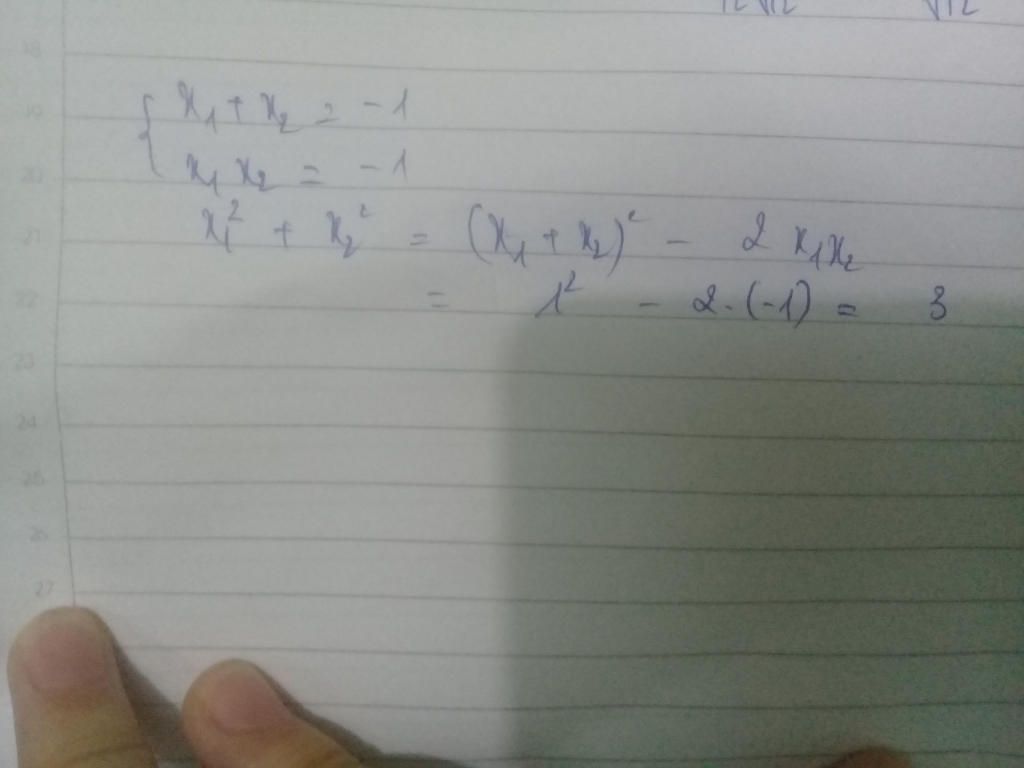 √12 √12
18
19 { x₁ + x₂ = -1
20 x₁ x₂ = -1
21 x₁² + x₂² = (x₁ + x₂)² - 2 x₁x₂
22 = 1² - 2·(-1) = 3
23
24
25
26
27